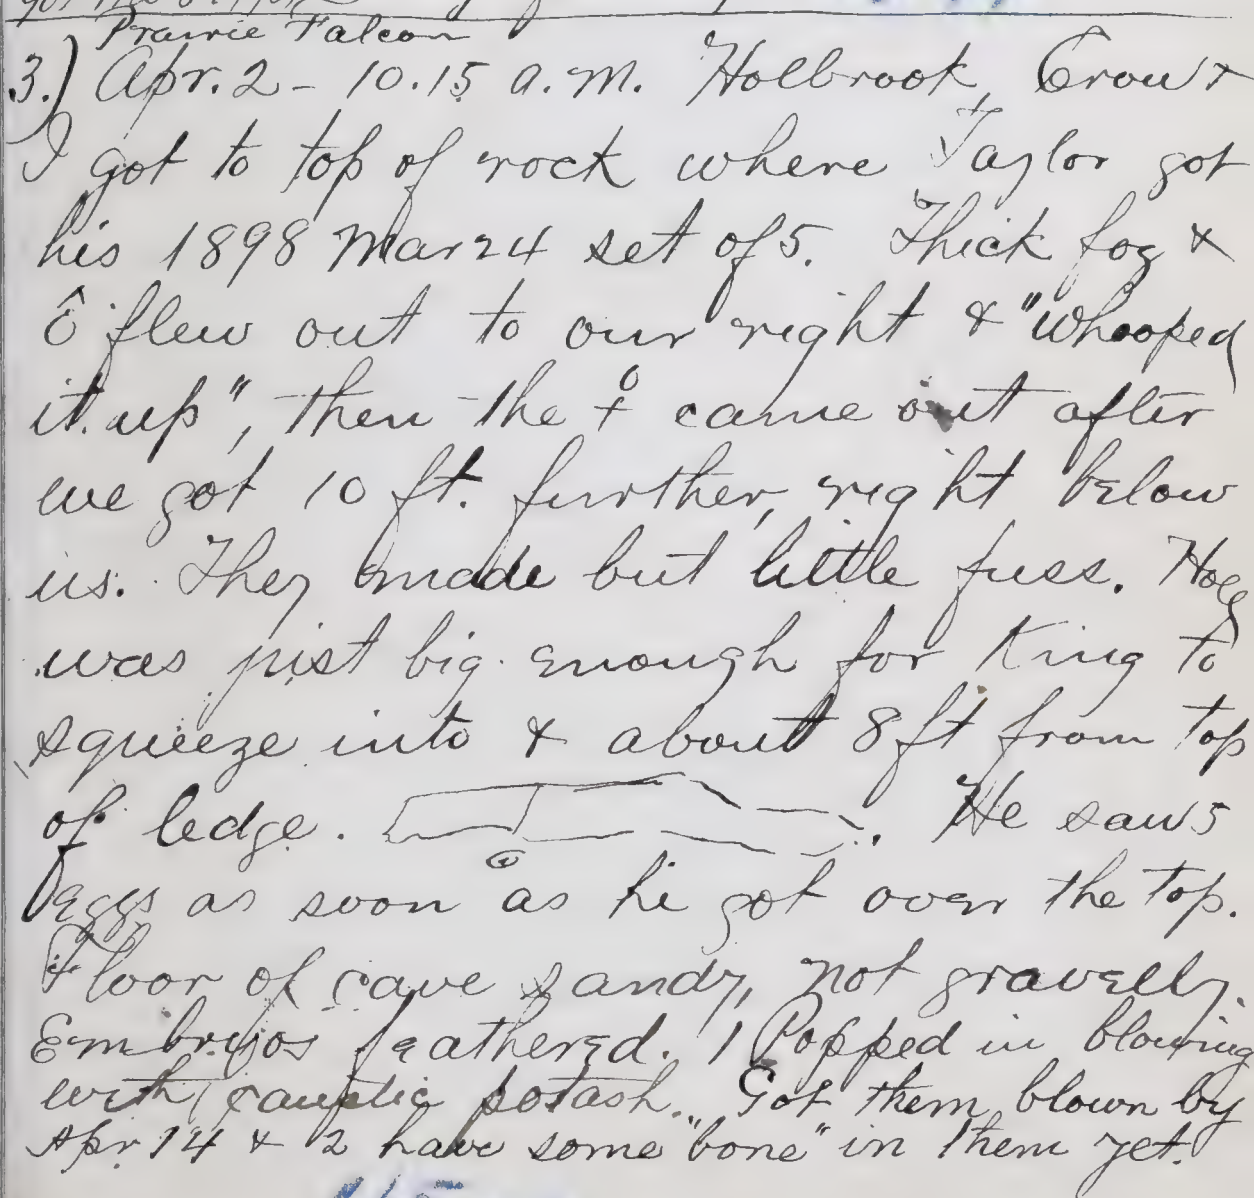 Prairie Falcon
3.) Apr. 2 - 10.15 a.m. Holbrook, Crow &
I got to top of rock where Taylor got
his 1898 Mar 24 set of 5. Thick fog &
flew out to our right & "whooped
it up", then the ♀ came out after
we got 10 ft. further, right below
us. They made but little fuss. Hole
was just big enough for King to
squeeze into & about 8 ft from top
of ledge. He saw 5
eggs as soon as he got over the top.
Floor of cave sandy, not gravelly.
Embryos feathered. 1 Popped in blowing
with caustic potash. Got them blown by
Apr 14 & 2 have some "bone" in them yet.